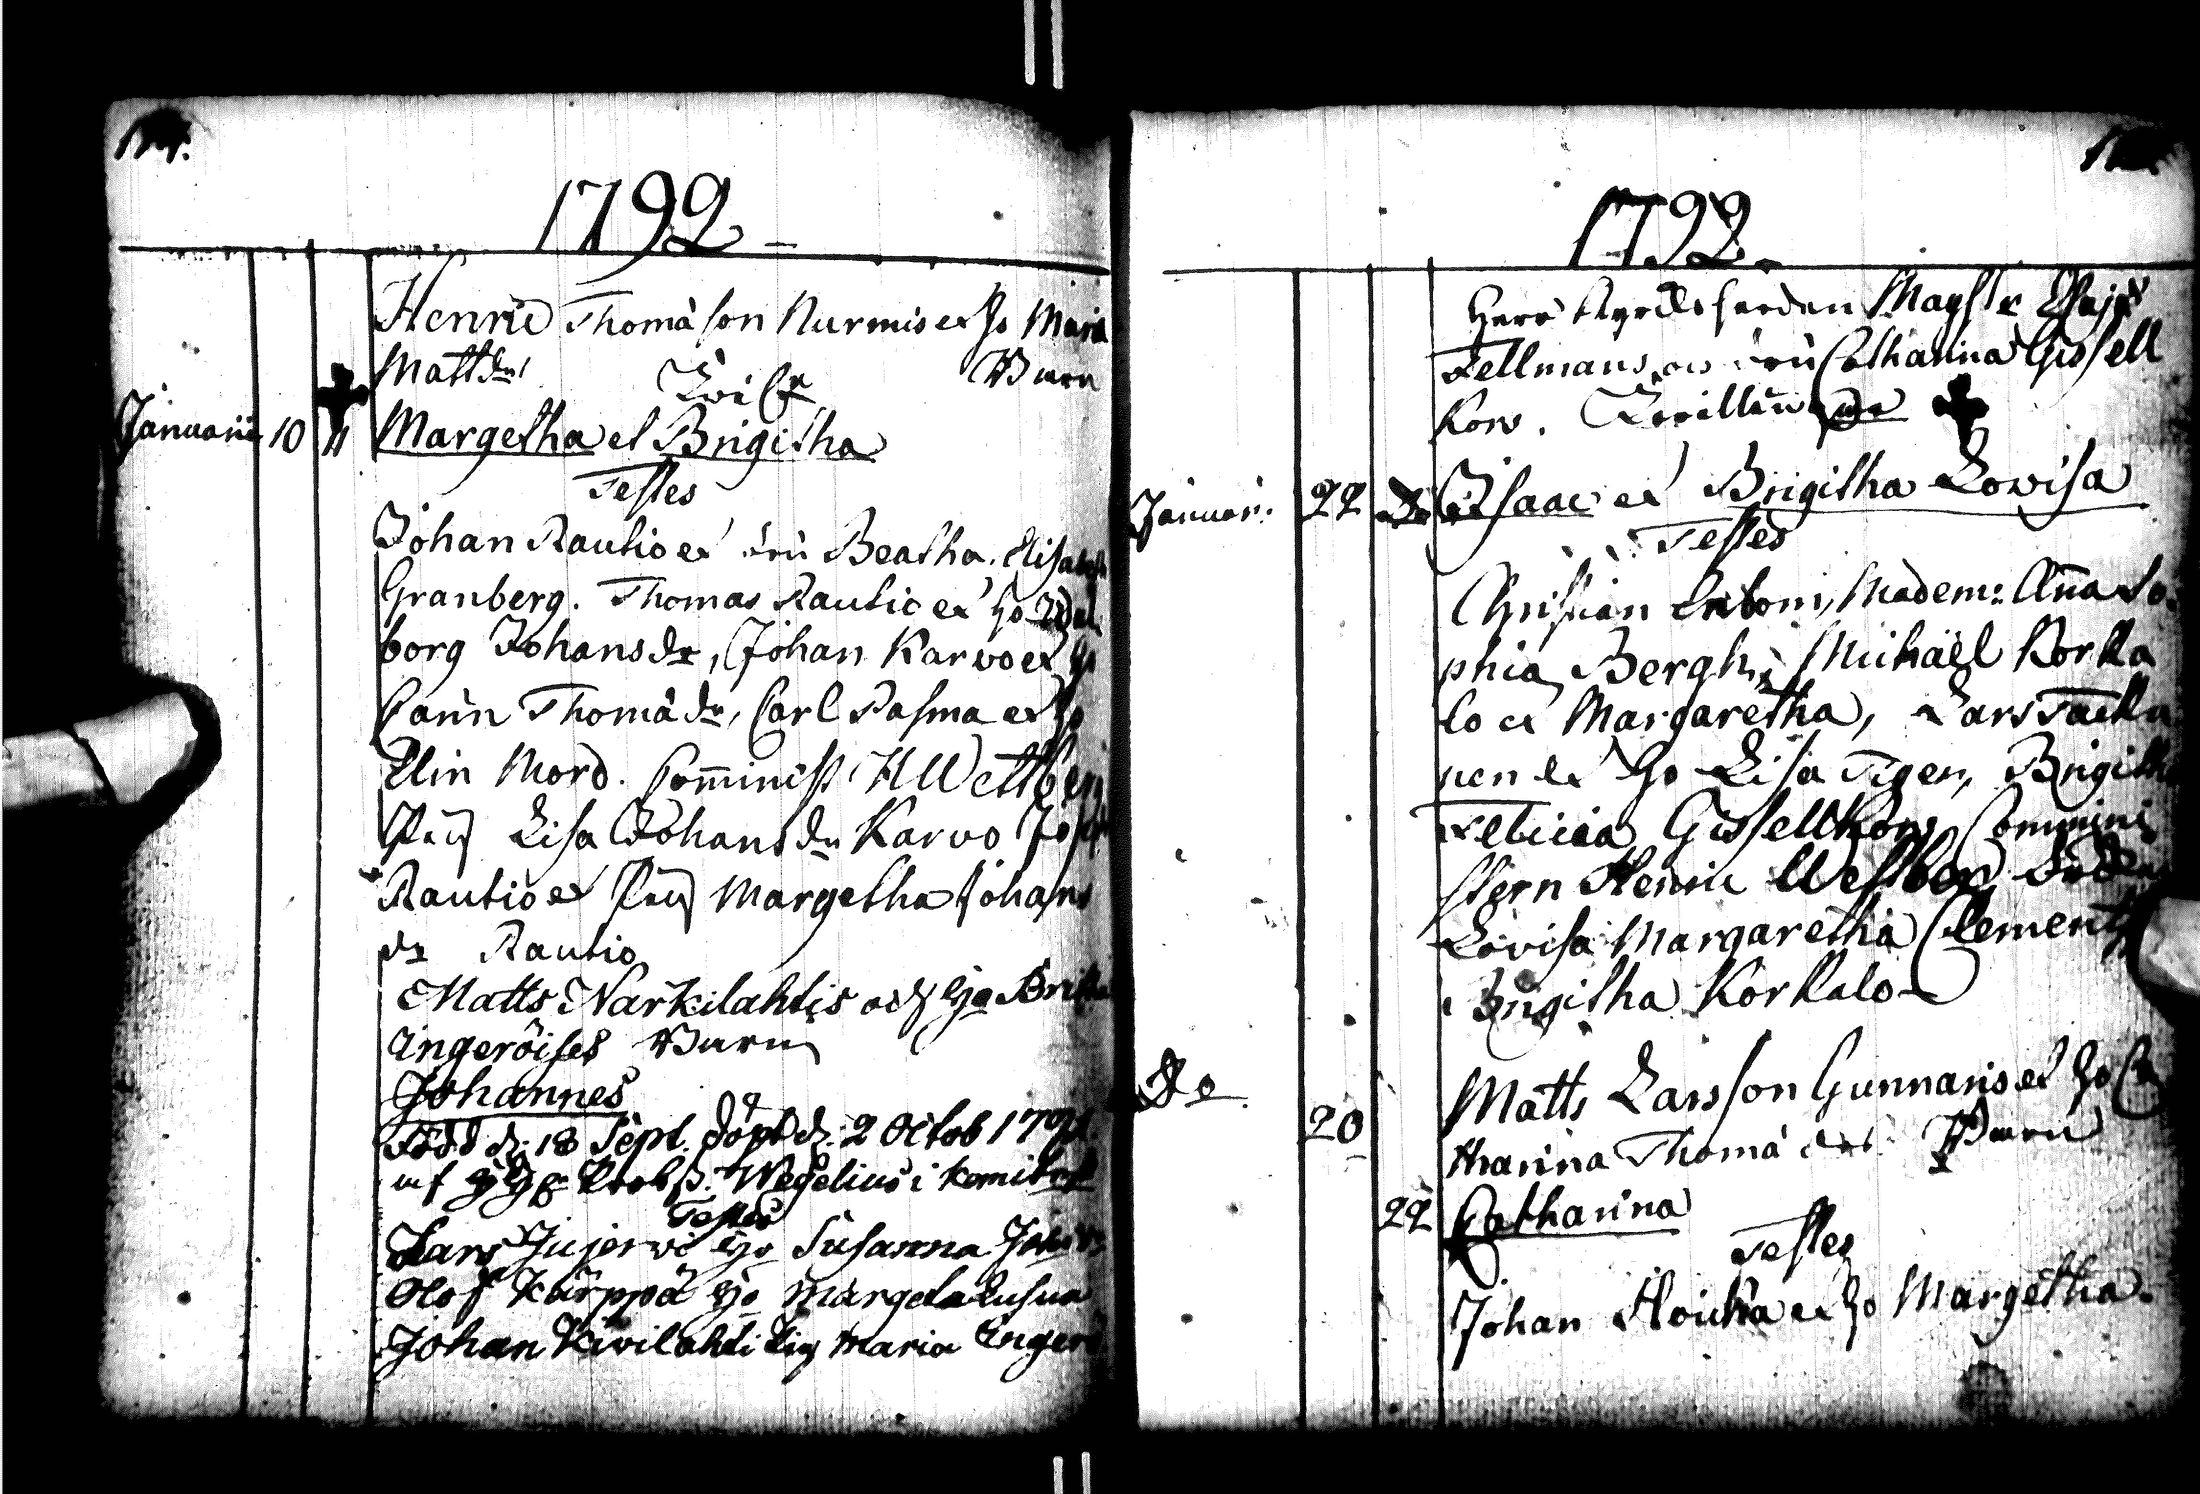 1792
Henric Thomasson Nurmis et Ho Maria
Mattsdrs Barn
Twill:r
Januarii 10 11 Margetha et Brigitha
Testes
Johan Rautio et Fru Beatha Elisabeth
Granberg. Thomas Rautio et Ho Wal
borg Johansdr, Johan Karvo et Ho
Carin Thomädr, Carl Pasma et Ho
Elin Mord. Comminist. H Westber
Pig Lisa Johansdr Karvo
Rautio et Pig Margetha Johans
dr Rautio
Matts Narkilahtis och Ho Brita
Ingeröises Barn
Johannes
Född d. 18 Sept. döpt d. 2 Octob 1791
af Probst. Wegelius i Kemi
Testes
Lars Jujerwi Ho Susanna
Olof Kärppä Ho Margeta Lusua
Johan Kivilahti Pig Maria Inger
1792
Herr Kyrkoherden Mag:r Esajæ
Fellmans och Fru Catharina Gissell
Kors. Twillingar
Januar. 22 Isaac et Brigitha Lovisa
Testes
Christian Antoni, Madem: Anna So
phia Bergh, Michaël Korka
lo et Margaretha, Lars Tackn
nen et Ho Lisa Tiger, Brigitha
Felicia Gissellkors, Commini
stern Henric Westber,
Lovisa Margaretha Clement
Brigitha Korkalo
Do 20 Matts Larsson Gunnaris et Ho Ca
tharina Thomädrs Barn
22 Catharina
Testes
Johan Houkka et Ho Margetha.